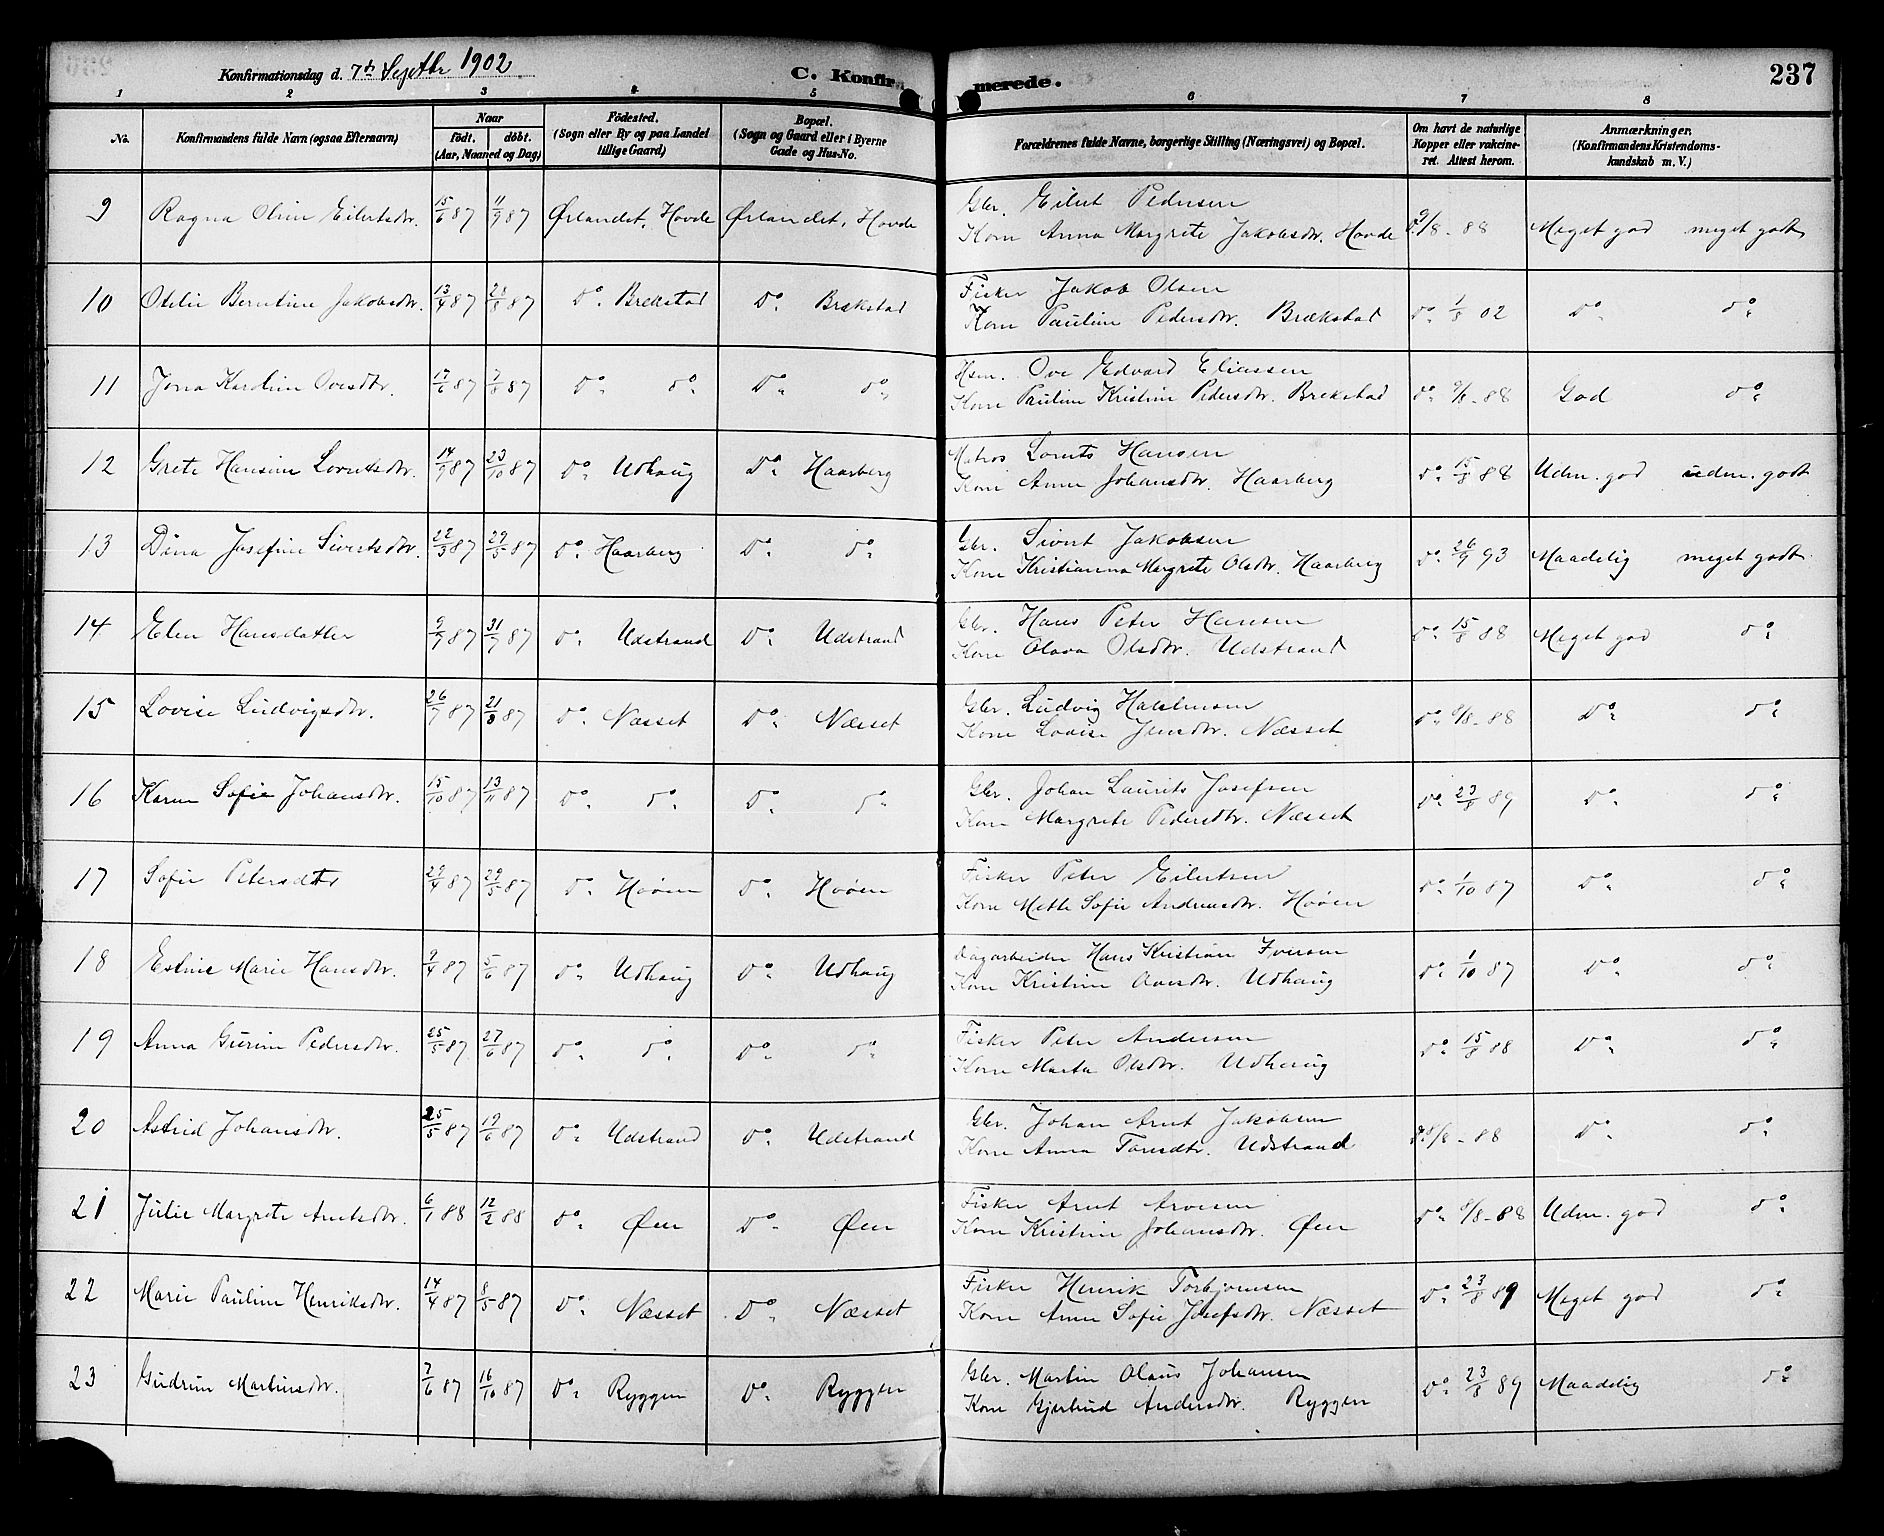 Konfirmationsdag d. 7de Septbr 1902
C. Konfirmerede.
237
1 2 3 4 5 6 7 8
No. Konfirmandens fulde Navn (ogsaa Efternavn) Naar födt. döbt. (Aar, Maaned og Dag) Födested. (Sogn eller By og paa Landet tillige Gaard) Bopæl. (Sogn og Gaard eller i Byerne Gade og Hus-No. Forældrenes fulde Navne, borgerlige Stilling (Næringsvei) og Bopæl. Om havt de naturlige Kopper eller vakcineret. Attest herom. Anmærkninger. (Konfirmandens Kristendomskundskab m. V.)
9 Ragna Oline Eilertsdtr. 15/6 87 11/9 87 Ørlandet, Hovde Ørlandet, Hovde Gbr. Eilert Pedersen
Kone Anna Margrete Jakobsdtr. Hovde 9/8 - 88 Meget god meget godt
10 Otelie Berntine Jakobsdtr. 13/4 87 21/8 87 Do. Brekstad Do. Brækstad Fisker Jakob Olsen
Kone Pauline Pedersdtr. Brækstad Do. 1/8 02 Do. do.
11 Jona Karoline Ovesdtr. 17/6 87 7/8 87 Do. do. Do. do. Hsm. Ove Edvard Eliassen
Kone Pauline Kristine Pedersdtr. Brekstad do. 9/8 - 88 God do.
12 Grete Hansine Lorntsdtr. 14/9 87 23/10 87 Do. Udhaug Do. Haarberg Matros Lornts Hansen
Kone Anne Johansdtr. Haarberg do. 15/8 88 Udm. god udm. godt
13 Dina Josefine Sivertsdtr. 22/3 87 29/5 87 Do. Haarberg Do. do. Gbr. Sivert Jakobsen
Kone Kristianna Margrete Olsdtr. Haarberg Do. 26/9 93 Maadelig meget godt.
14 Elen Hansdatter 9/7 87 31/7 87 Do. Udstrand Do. Udstrand Gbr. Hans Peter Hansen
Kone Olava Olsdtr. Udstrand Do. 15/8 88 Meget god do.
15 Lovise Ludvigsdtr. 26/7 87 21/8 87 Do. Næsset Do. Næsset Gbr. Ludvig
Kone Lovise Jensdtr. Næsset Do. 9/8 - 88 Do. do.
16 Karen Sofie Johansdtr. 15/10 87 13/11 87 Do. do. Do. do. Gbr. Johan Laurits Josefsen
Kone Margrete Pedersdtr. Næsset Do. 23/8 89 Do. do.
17 Sofie Petersdtr 29/4 87 29/5 87 Do. Hoøen Do. Hoøen Fisker Peter Eilertsen
Kone Mette Sofie Andreasdtr. Hoøen Do. 1/10 87 Do. do.
18 Estine Marie Hansdtr. 9/4 87 5/6 87 Do. Udhaug Do. Udhaug Dagarbeider Hans Kristian Iversen
Kone Kristine Ovesdtr. Udhaug Do. 1/10 87 Do. do.
19 Anna Gurine Pedersdtr. 25/5 87 27/6 87 Do. do. Do. do. Fisker Peter Andersen
Kone Marta Olsdtr. Udhaug Do. 15/8 88 Do. do.
20 Astrid Johansdtr. 25/5 87 19/6 87 Do. Udstrand Do. Udstrand Gbr. Johan Arnt Jakobsen
Kone Anna Tomasdtr. Udstrand 9/8 - 88 Do. do.
21 Julie Margrete Arntsdtr. 6/1 88 12/2 88 Do. Øen Do. Øen Fisker Arnt Arvesen
Kone Kristine Johansdtr. Øen Do. 9/8 - 88 Udm. god do.
22 Marie Pauline Henriksdtr. 14/4 87 8/5 87 Do. Næsset Do. Næsset Fisker Henrik Torbjørnsen
Kone Anne Sofie Josefsdtr. Næsset Do. 23/8 89 Meget god do.
23 Gudrun Martinsdtr. 7/6 87 16/10 87 Do. Ryggen Do. Ryggen Gbr. Martin Olaus Johansen
Kone Gjertrud Andersdtr. Ryggen Do. 23/8 89 Maadelig do.